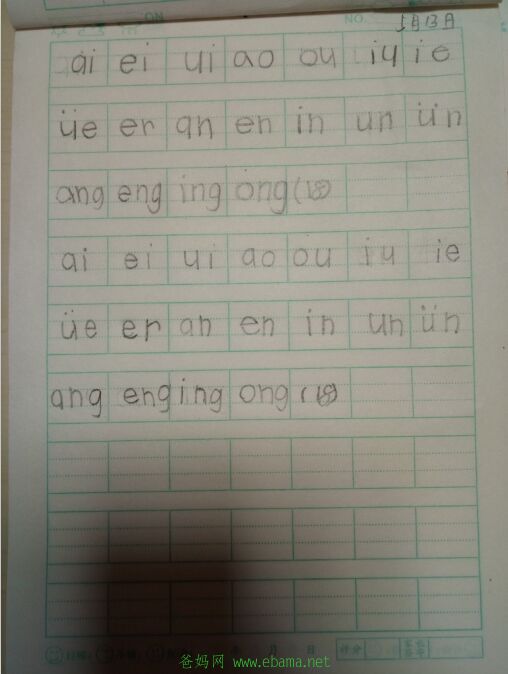 NO. 5月13日
ai ei ui ao ou iu ie
üe er an en in un ün
ang eng ing ong (18)
ai ei ui ao ou iu ie
üe er an en in un ün
ang eng ing ong (18)
年 月 日 评分
爸妈网 www.ebama.net